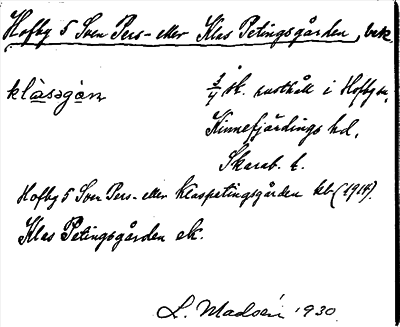 Hofby 5 Sven Pers- eller Klas Petingsgården, bek.
klåsəgån
3/4 sk. rusthåll i Hofby sn,
Kinnefjärdings hd,
Skarab. l.
Hofby 5 Sven Pers- eller Klaspetingsgården kb (1914).
Klas Petingsgården ek.
L. Madsén 1930